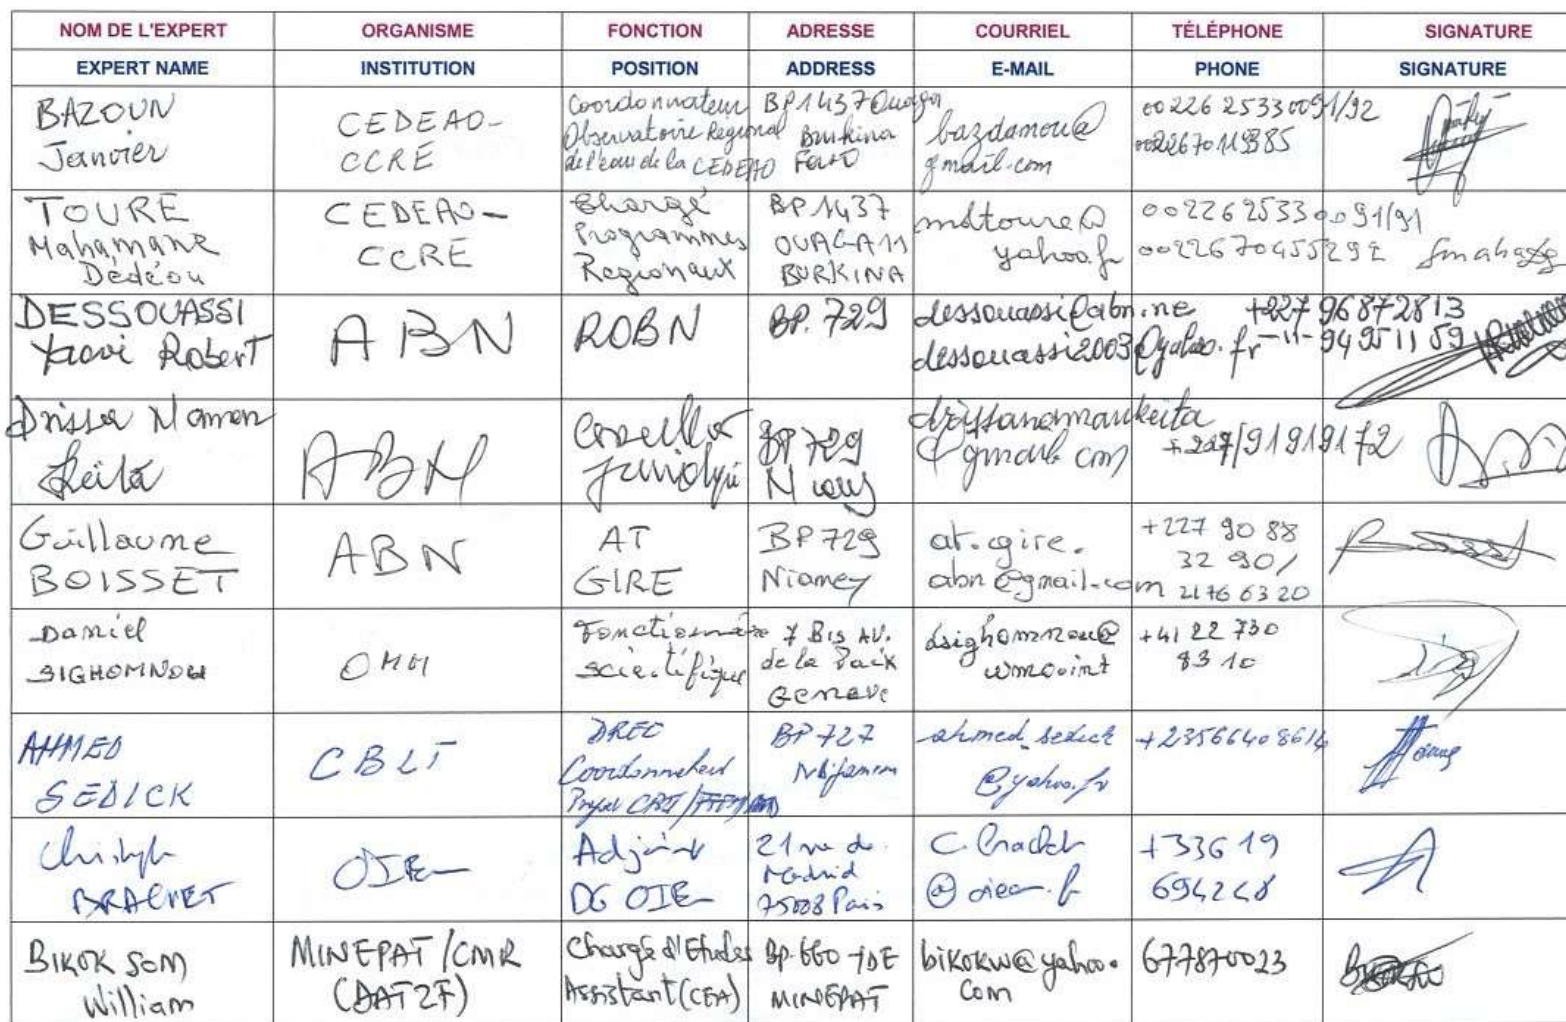 NOM DE L'EXPERT ORGANISME FONCTION ADRESSE COURRIEL TÉLÉPHONE SIGNATURE
EXPERT NAME INSTITUTION POSITION ADDRESS E-MAIL PHONE SIGNATURE
BAZOUN
Janvier
CEDEAO-
CCRE
Coordonnateur
Observatoire Regional
de l'eau de la CEDEAO
BP1437 Ouaga
Burkina
Faso
bazdamou@
gmail.com
00226 25330091/92
TOURE
Mahamane
Dedéou
CEDEAO-
CCRE
Chargé
Programmes
Regionaux
BP 1437
BURKINA
mdtoure@
yahoo.fr
0022625330091/91
0022670455292
DESSOUASSI
Yaovi Robert
ABN
ROBN
BP. 729
dessouassi@abn.ne
dessouassi2003@yahoo.fr
+227 96872813
-11- 94951159
Drissa Naman
Keita
ABN
Conseiller
juridique
BP 729
Niamey
drissanamankeita
@gmail.com
+227/91919172
Guillaume
BOISSET
ABN
AT
GIRE
BP 729
Niamey
at.gire.
abn@gmail.com
+227 90 88
32 90/
2176 63 20
Daniel
SIGHOMNOU
OMM
Fonctionnaire
scientifique
7 Bis AV.
de la Paix
Geneve
dsighomnou@
wmo.int
+41 22 730
83 10
AHMED
SEDICK
CBLT
DREC
Coordonnateur
Projet
BP 727
Ndjamena
ahmed_sedick
@yahoo.fr
+23566408614
Christophe
BRACHET
OIE
Adjoint
DG OIE
21 rue de
Madrid
75008 Paris
c.brachet
@oieau.fr
+33619
694248
BIKOK SOM
William
MINEPAT/CMR
(DAT2F)
Chargé d'Etudes
Assistant (CEA)
BP. 660 YDE
MINEPAT
bikokw@yahoo.
com
677870023